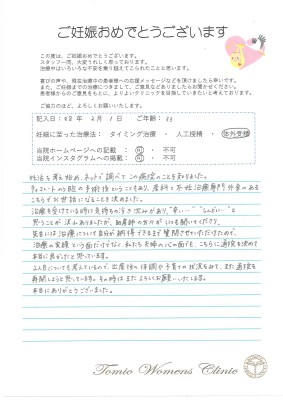 ご妊娠おめでとうございます
この度は、ご妊娠おめでとうございます。
スタッフ一同、大変うれしく思っております。
治療中はいろいろな不安を乗り越えてこられたことと思います。
喜びの声や、現在治療中の患者様への応援メッセージなどを頂けましたら幸いです。
また、ご妊娠までの治療につきまして、ご意見などありましたらお聞かせください。
患者様からのご意見をもとに、よりよいクリニックを目指していきたいと考えております。
ご協力のほど、よろしくお願いいたします。
記入日: 年 2月 1日 ご年齢: 33
妊娠に至った治療法: タイミング治療 ・ 人工授精 ・ 体外受精
当院ホームページへの記載: 可 ・ 不可
当院インスタグラムへの掲載: 可 ・ 不可
妊活を考え始め、ネットで調べてこの病院のことを知りました。
チョコレートのう胞の手術後ということもあり、産科と不妊治療専門外来のある
こちらでお世話になることを決めました。
治療を受けている時は気持ちの浮き沈みがあり、"辛い…" "しんどい…"と
思うことが沢山ありましたが、助産師の方がいつも話を聞いてくださり、
先生には治療について自分が納得できるまで質問させていただけたので、
治療の実績という面だけでなく、私たち夫婦の心の面でも、こちらに通院を決めて
本当に良かったと思っています。
2人目についても考えているので、出産後の体調や子育ての状況をみて、また通院を
再開しようと思っています。その時はまたよろしくお願いいたします。
本当にありがとうございました。
Tomio Womens Clinic